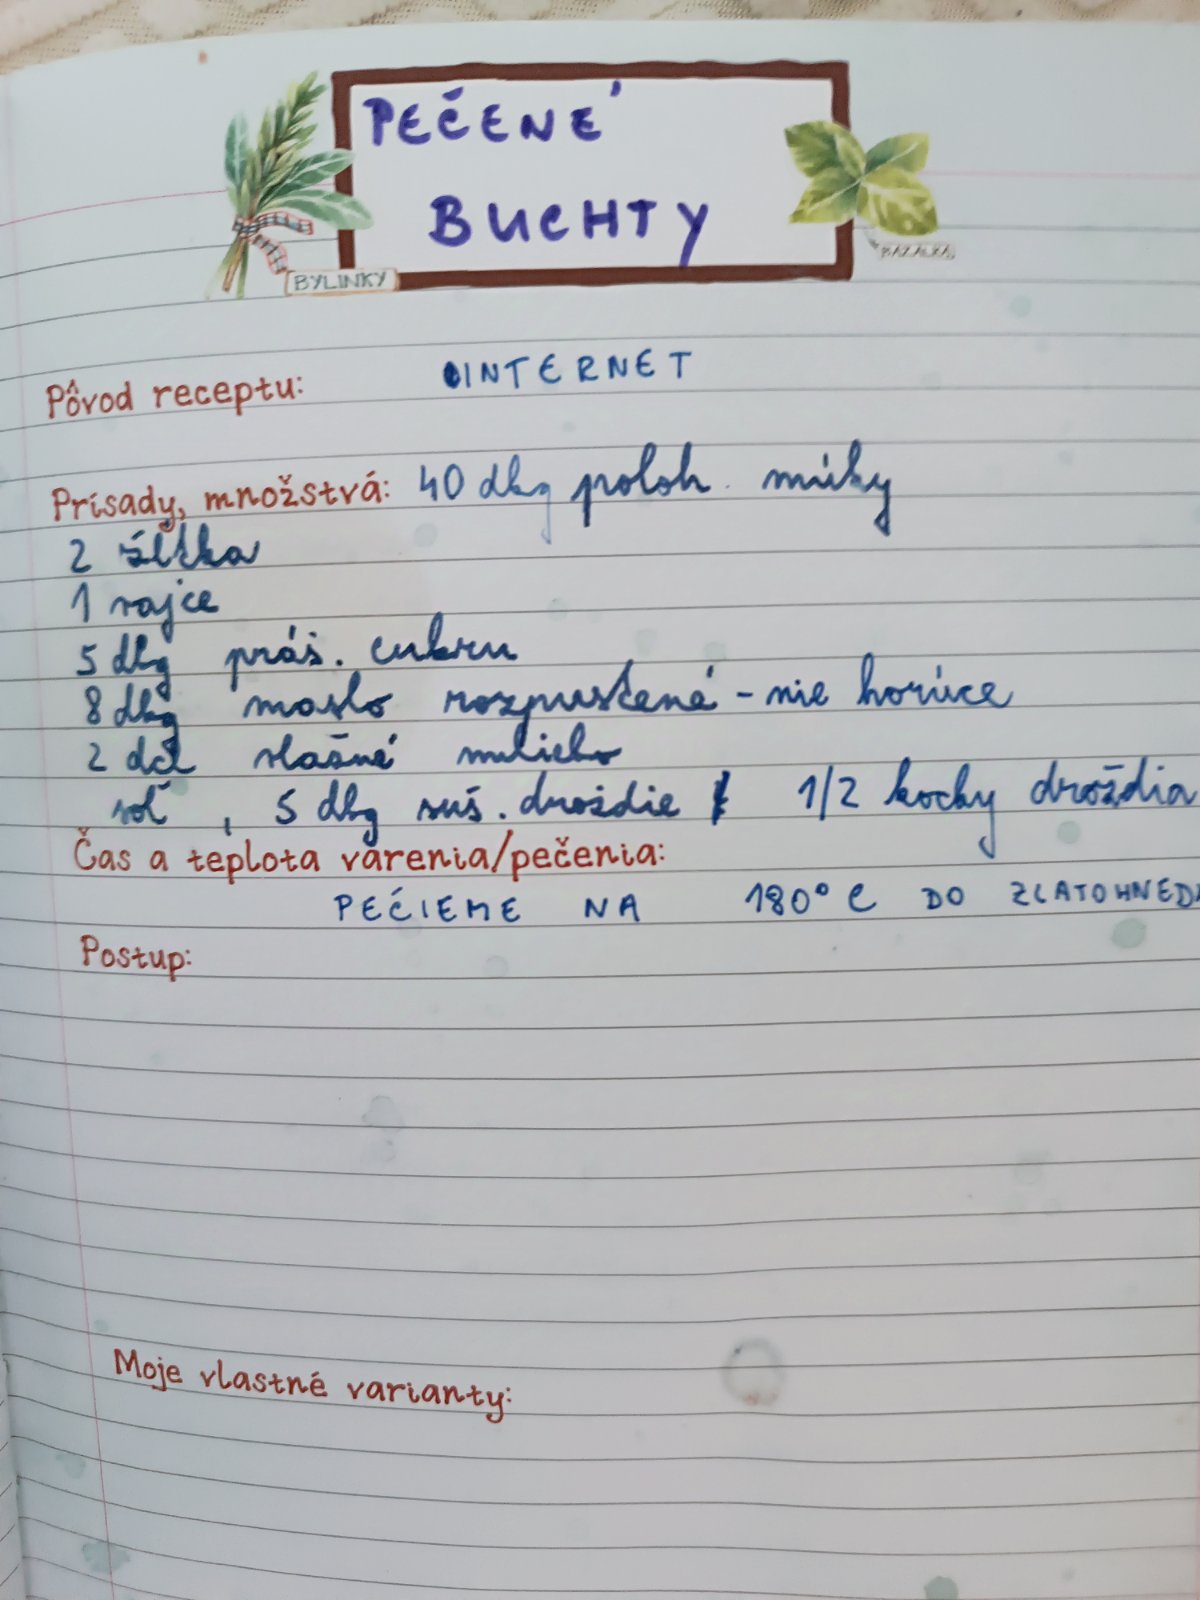 PEČENÉ
BUCHTY
BYLINKY
BAZALKA
Pôvod receptu: INTERNET
Prísady, množstvá: 40 dkg poloh. múky
2 žĺtka
1 vajce
5 dkg práš. cukru
8 dkg maslo rozpustené - nie horúce
2 dcl vlažné mlieko
soľ, 5 dkg suš. droždie 1/2 kocky droždia
Čas a teplota varenia/pečenia:
PEČIEME NA 180°C DO ZLATOHNEDA
Postup:
Moje vlastné varianty: